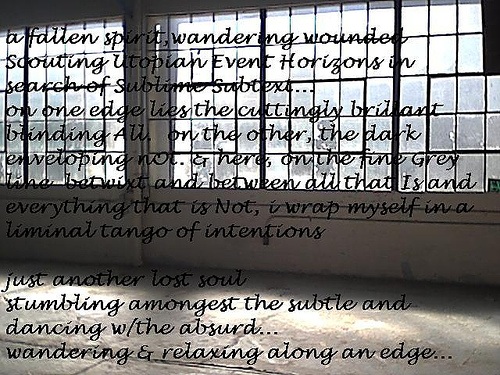 a fallen spirit,wandering wounded
Scouting Utopian Event Horizons in
search of Sublime Subtext...
on one edge lies the cuttingly brillant
blinding All.  on the other, the dark
enveloping nOt. & here, on the fine Grey
line  betwixt and between all that Is and
everything that is Not, i wrap myself in a
liminal tango of intentions

just another lost soul
stumbling amongest the subtle and
dancing w/the absurd...
wandering & relaxing along an edge...